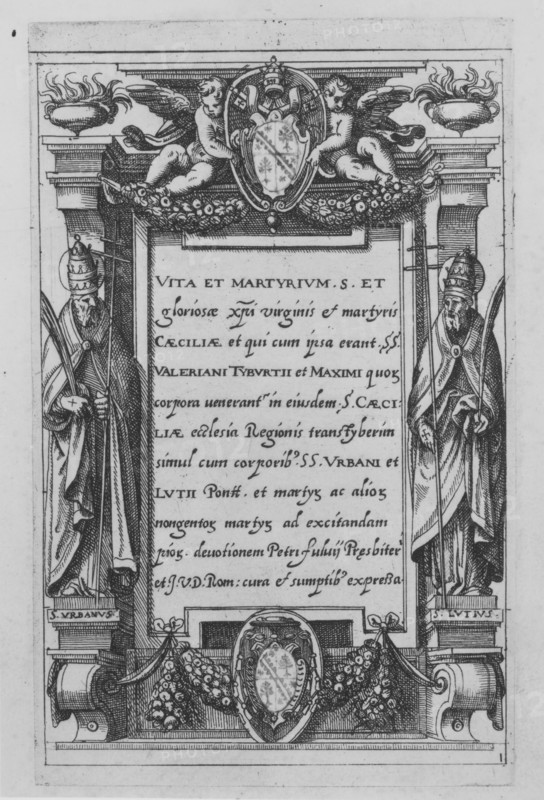 VITA ET MARTYRIVM . S . ET
gloriosæ xp̄i virginis et martyris
CÆCILIÆ et qui cum ipsa erant . SS.
VALERIANI TYBVRTII et MAXIMI quoꝝ
corpora uenerantʳ in eiusdem . S. CÆCI:
LIÆ ecclesia Regionis transtyberim
simul cum corporibꝰ SS . VRBANI et
LVTII Pontt̄ . et martyꝝ ac alioꝝ
nongentoꝝ martyꝝ ad excitandam
pioꝝ . deuotionem Petri fuluij Pręsbiter
et J.V.D. Rom: cura et sumptibꝰ expressa
S. VRBANVS.
S. LVTIVS.
1